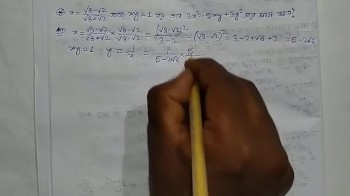 x = √3-√2/√3+√2 এবং xy = 1 হয় তবে 3x² - 5xy + 3y² এর মান কত?
x = √3-√2/√3+√2 × √3-√2/√3-√2 = (√3-√2)²/3-2 = (√3-√2)² = 3 - 2√6 + 2 = 5 - 2√6
xy = 1 ∴ y = 1/x = 1/5-2√6 × 5